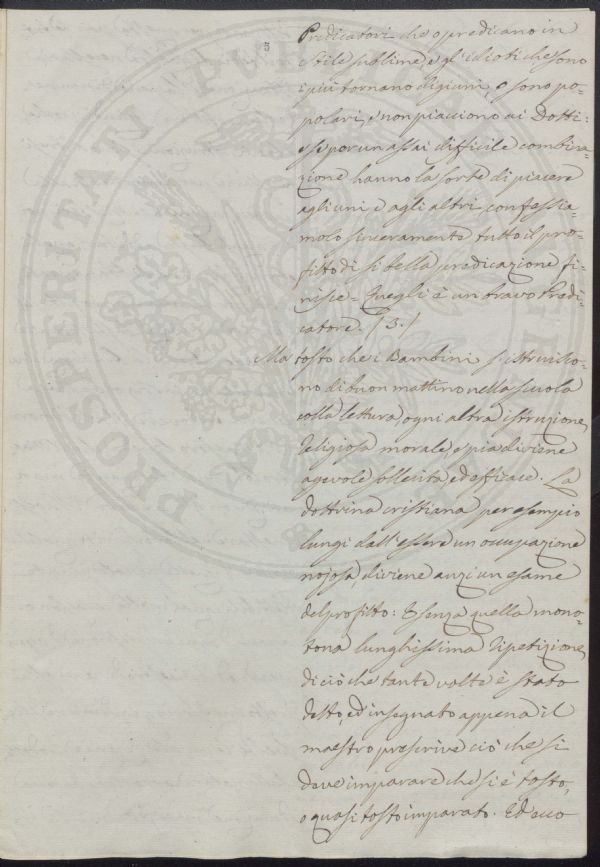 5
Predicatori che o predicano in
istile sublime, e gl'idioti che sono
i più tornano digiuni, o sono po-
polari, e non piacciono ai Dotti:
e se por un assai difficile combina-
zione hanno la sorte di piacere
agli uni e agli altri confessia-
molo sinceramente tutto il pro-
fitto di sì bella predicazione fi-
nisce = Quegli è un bravo Predi-
catore. /3./
Ma tosto che i Bambini s'istruisco-
no di buon mattino nella scuola
colla lettura, ogni altra istruzione
religiosa morale, e pia diviene
agevole sollecita, ed efficace. La
dottrina cristiana per esempio
lungi dall'essere un occupazione
nojosa, diviene anzi un esame
del profitto: E senza quella mono-
tona lunghissima ripetizione
di ciò che tante volte è stato
detto, ed insegnato appena il
maestro prescrive ciò che si
deve imparare che si è tosto,
o quasi tosto imparato. Ed ecco
PROSPERITATI PUBLICAE